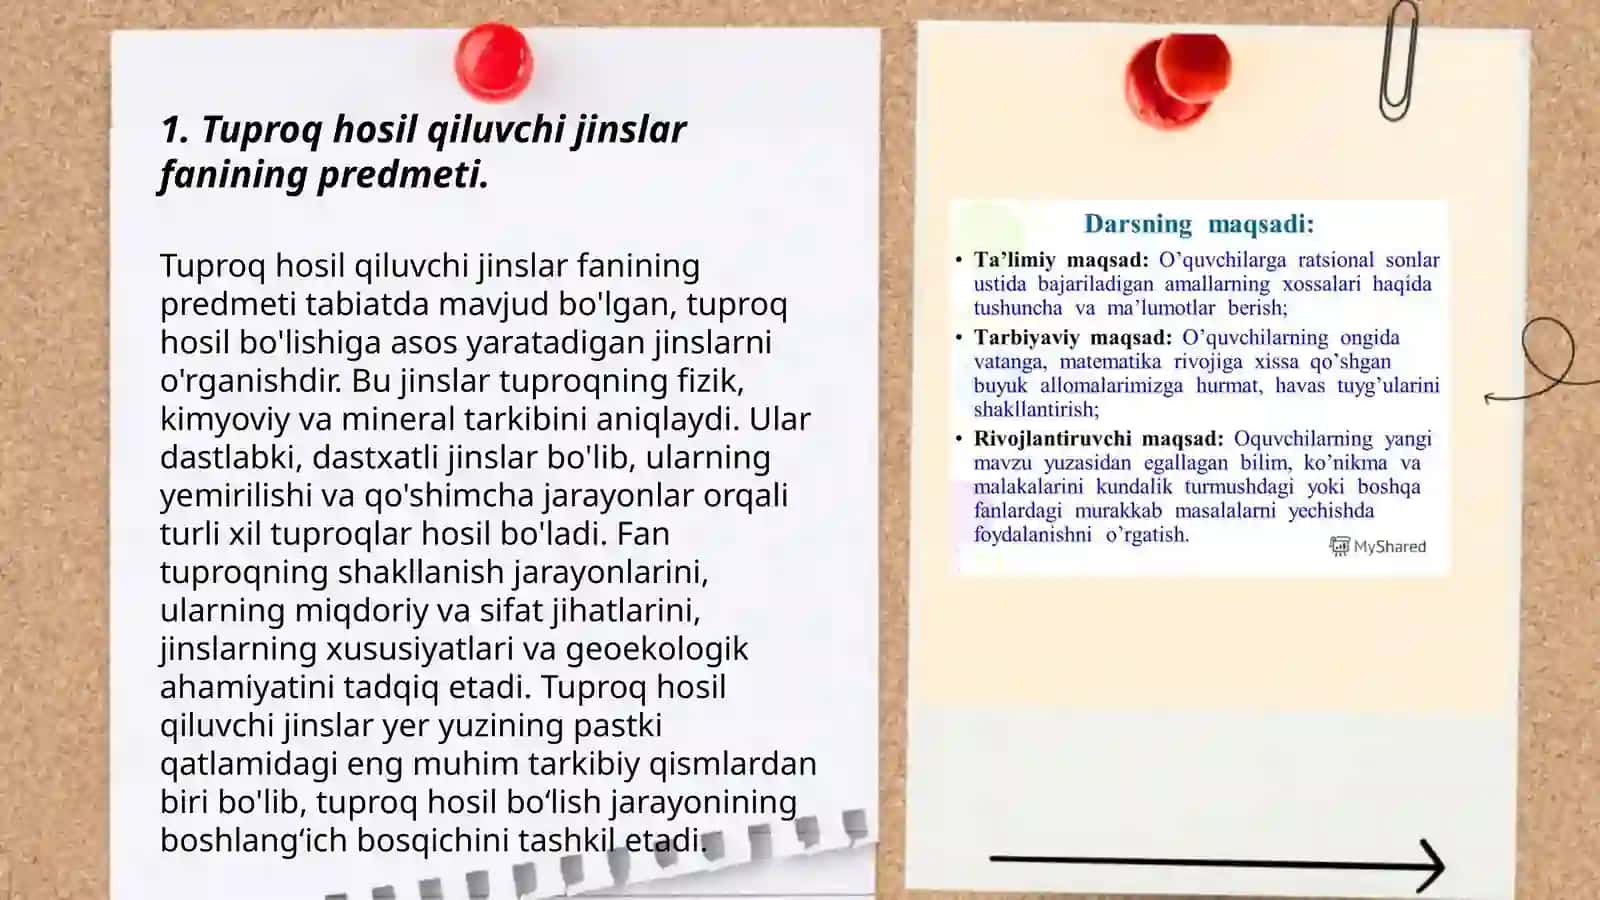 1. Tuproq hosil qiluvchi jinslar
fanining predmeti.
Tuproq hosil qiluvchi jinslar fanining
predmeti tabiatda mavjud bo'lgan, tuproq
hosil bo'lishiga asos yaratadigan jinslarni
o'rganishdir. Bu jinslar tuproqning fizik,
kimyoviy va mineral tarkibini aniqlaydi. Ular
dastlabki, dastxatli jinslar bo'lib, ularning
yemirilishi va qo'shimcha jarayonlar orqali
turli xil tuproqlar hosil bo'ladi. Fan
tuproqning shakllanish jarayonlarini,
ularning miqdoriy va sifat jihatlarini,
jinslarning xususiyatlari va geoekologik
ahamiyatini tadqiq etadi. Tuproq hosil
qiluvchi jinslar yer yuzining pastki
qatlamidagi eng muhim tarkibiy qismlardan
biri bo'lib, tuproq hosil bo‘lish jarayonining
boshlang‘ich bosqichini tashkil etadi.
Darsning maqsadi:
• Ta’limiy maqsad: O’quvchilarga ratsional sonlar
ustida bajariladigan amallarning xossalari haqida
tushuncha va ma’lumotlar berish;
• Tarbiyaviy maqsad: O’quvchilarning ongida
vatanga, matematika rivojiga xissa qo’shgan
buyuk allomalarimizga hurmat, havas tuyg’ularini
shakllantirish;
• Rivojlantiruvchi maqsad: Oquvchilarning yangi
mavzu yuzasidan egallagan bilim, ko’nikma va
malakalarini kundalik turmushdagi yoki boshqa
fanlardagi murakkab masalalarni yechishda
foydalanishni o’rgatish.
MyShared